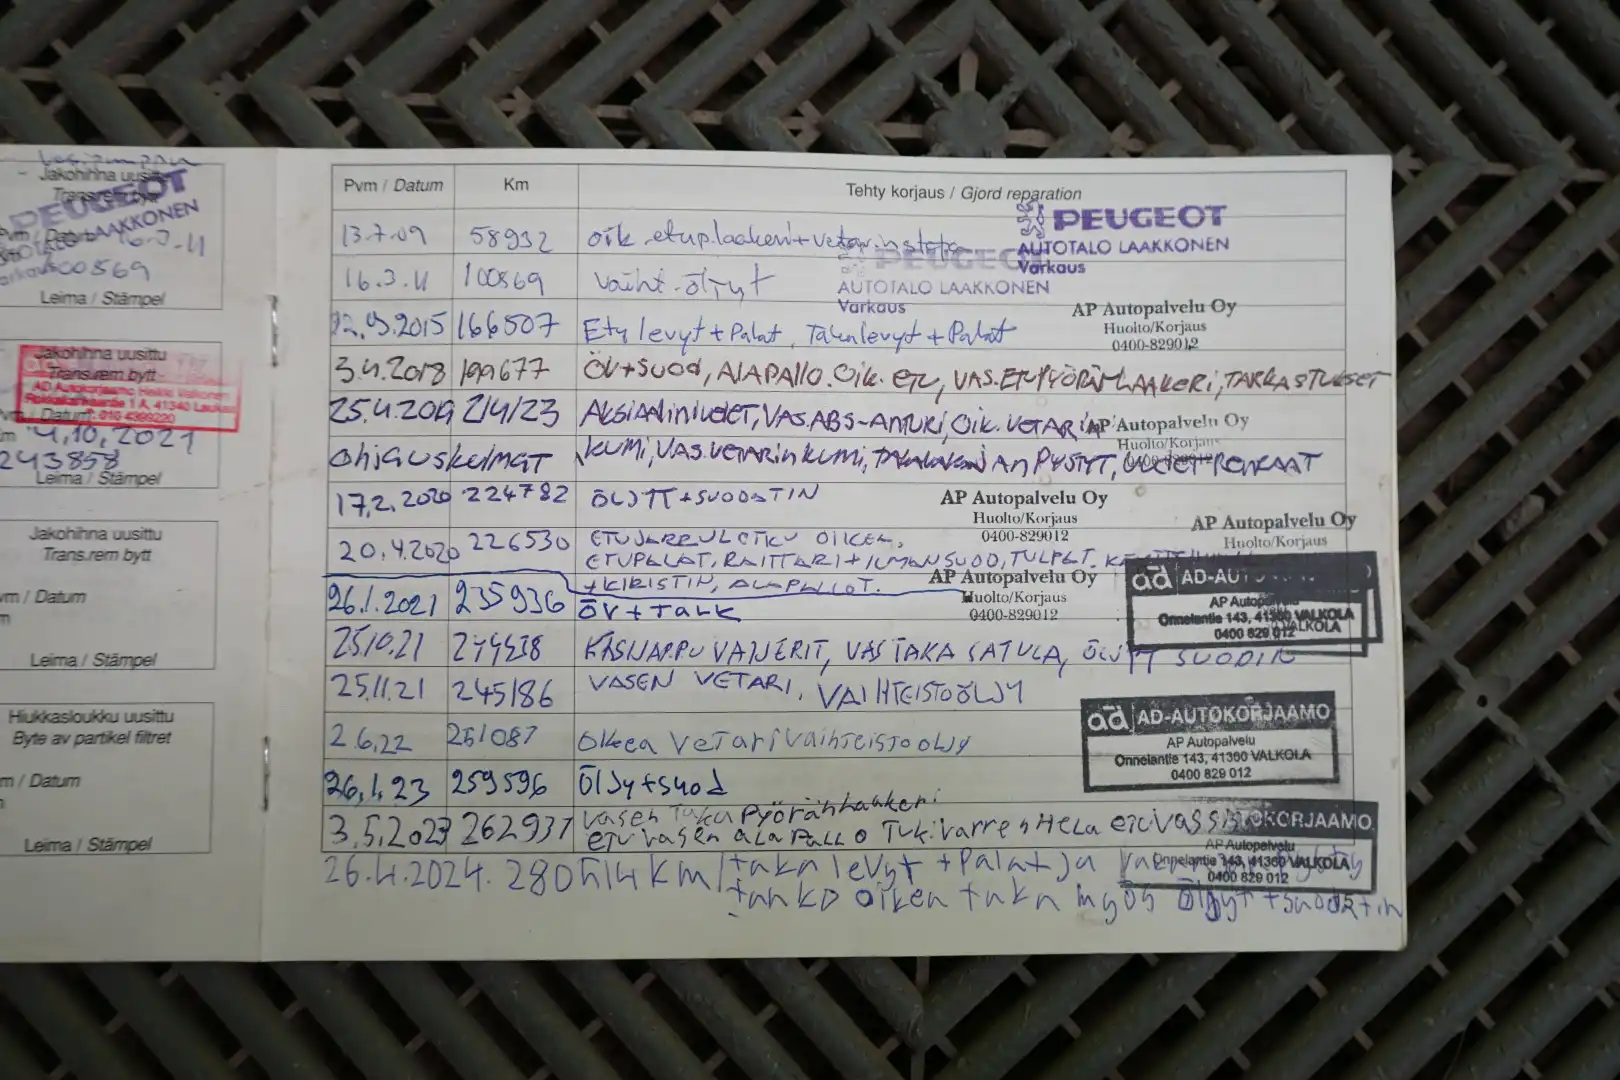 Jakohihna uusittu
Trans.rem bytt
PEUGEOT
AUTOTALO LAAKKONEN
16.3.11
100569
Leima / Stämpel
Jakohihna uusittu
Trans.rem bytt
AD Autokorjaamo
1 A, 41340 Laukaa
4.10.2021
243858
Leima / Stämpel
Jakohihna uusittu
Trans.rem bytt
/ Datum
Leima / Stämpel
Hiukkasloukku uusittu
Byte av partikel filtret
/ Datum
Leima / Stämpel
Pvm / Datum Km Tehty korjaus / Gjord reparation
13.7.09 58932 oik. etup.laakeri +
PEUGEOT
AUTOTALO LAAKKONEN
Varkaus
16.3.11 100569 Vaiht-öljyt
PEUGEOT
AUTOTALO LAAKKONEN
Varkaus
.9.2015 166507 Etulevyt + Palat, Takalevyt + Palat
AP Autopalvelu Oy
Huolto/Korjaus
0400-829012
3.4.2018 199677 ÖV+SUOD, ALAPALLO. OIK. ETU, VAS. ETUPYÖRÄNLAAKERI, TAKKASTUKSET
25.4.2019 214123 AKSIAALINIVELET, VAS. ABS-ANTURI, OIK. VETARIN
AP Autopalvelu Oy
Huolto/Korjaus
0400-829012
ohjauskulmat KUMI, VAS. VETARIN KUMI, PYSTYT, UUDET RENKAAT
17.2.2020 224782 ÖLJYT + SUODATIN
AP Autopalvelu Oy
Huolto/Korjaus
0400-829012
AP Autopalvelu Oy
Huolto/Korjaus
20.4.2020 226530 ETUJARRULETKU OIKEA,
ETUPALAT, RAITTARI + ILMANSUOD, TULPAT,
+ KIRISTIN, ALAPALLOT.
AP Autopalvelu Oy
Huolto/Korjaus
0400-829012
26.1.2021 235936 ÖV + TALK
ad AD-AU
AP Autopalvelu
Onnelantie 143, 41360 VALKOLA
0400 829 012
25.10.21 244438 KÄSIJARRU VAIJERIT, VAS TAKA SATULA, ÖLJYT SUODIN
25.11.21 245186 VASEN VETARI, VAIHTEISTOÖLJY
ad AD-AUTOKORJAAMO
AP Autopalvelu
Onnelantie 143, 41360 VALKOLA
0400 829 012
2.6.22 251087 Oikea Vetari vaihteistoöljy
26.1.23 259596 Öljy+suod
3.5.2023 262937 Vasen Taka Pyöränlaakeri
etuvasen alapallo Tukivarren Hela etuvas
TOKORJAAMO
AP Autopalvelu
Onnelantie 143, 41360 VALKOLA
0400 829 012
26.4.2024. km/taka levyt + Palat ja
tanko oikea taka myös Öljyt + suodatin